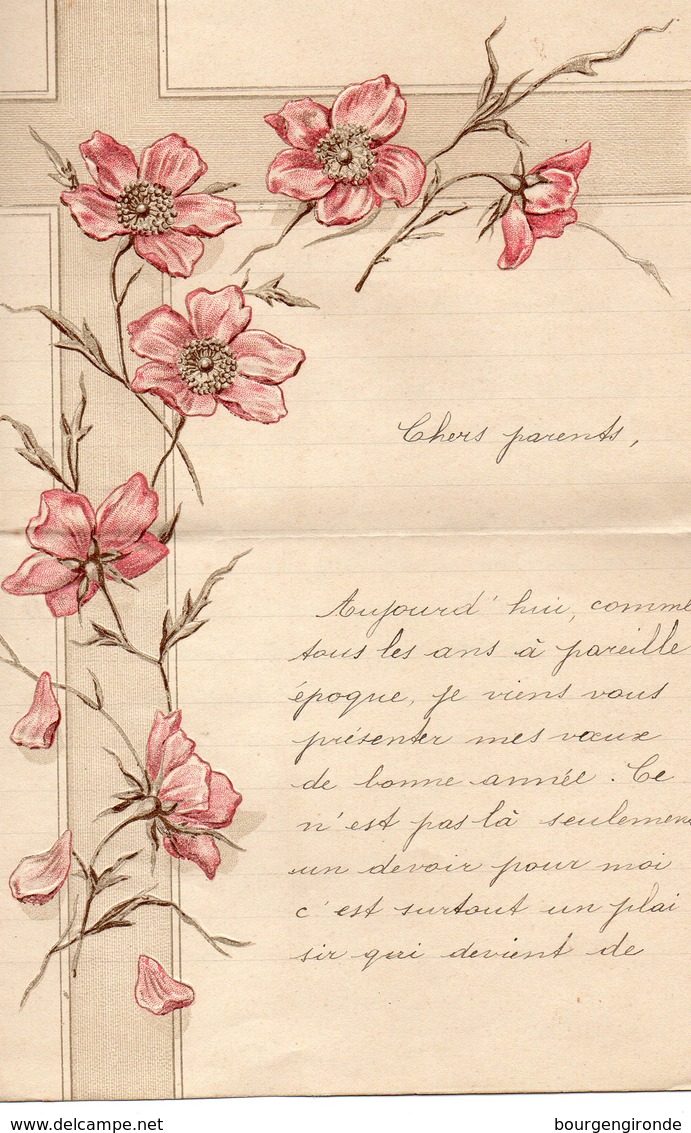 Chers parents,
Aujourd'hui, comme
tous les ans à pareille
époque, je viens vous
présenter mes vœux
de bonne année. Ce
n'est pas là seulemen
un devoir pour moi
c'est surtout un plai
sir qui devient de
www.delcampe.net
bourgengironde